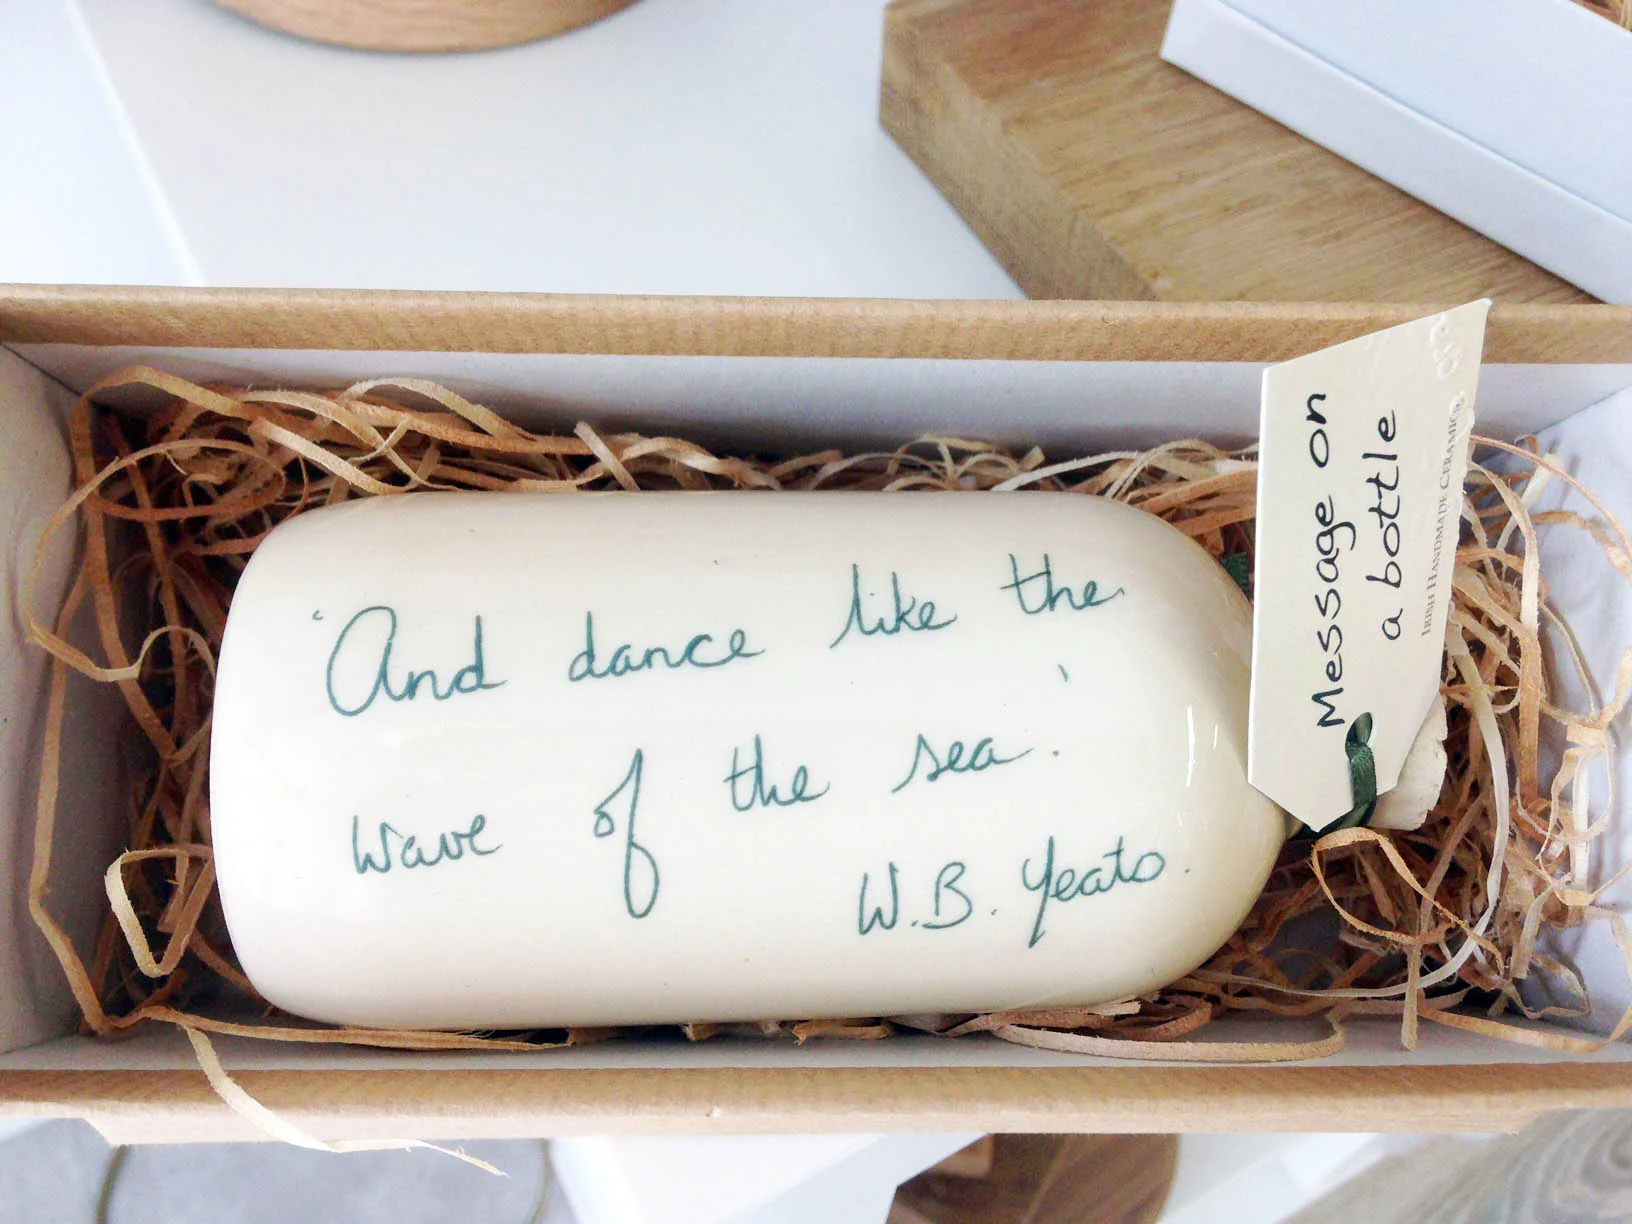 'And dance like the
wave of the sea.'
W.B. Yeats.
Message on
a bottle
IRISH HANDMADE CERAMICS